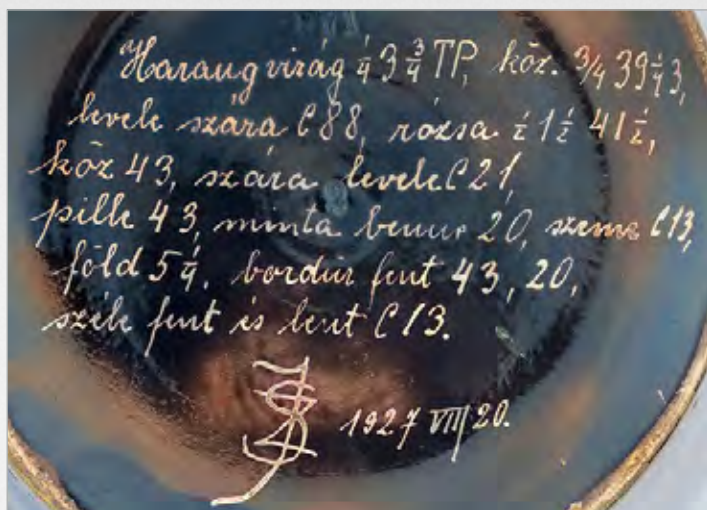 Haraug virág ¼ 3 ¾ TP, köz. ¾ 39 ¼ 3,
levele szára C 88, rózsa ½ 1 ½ 41 ½,
köz 43, szára levele C 21,
pille 43, minta benne 20, szeme C 13,
föld 5 ¼, bordür fent 43, 20,
széle fent és lent C 13.
1927 VIII 20.